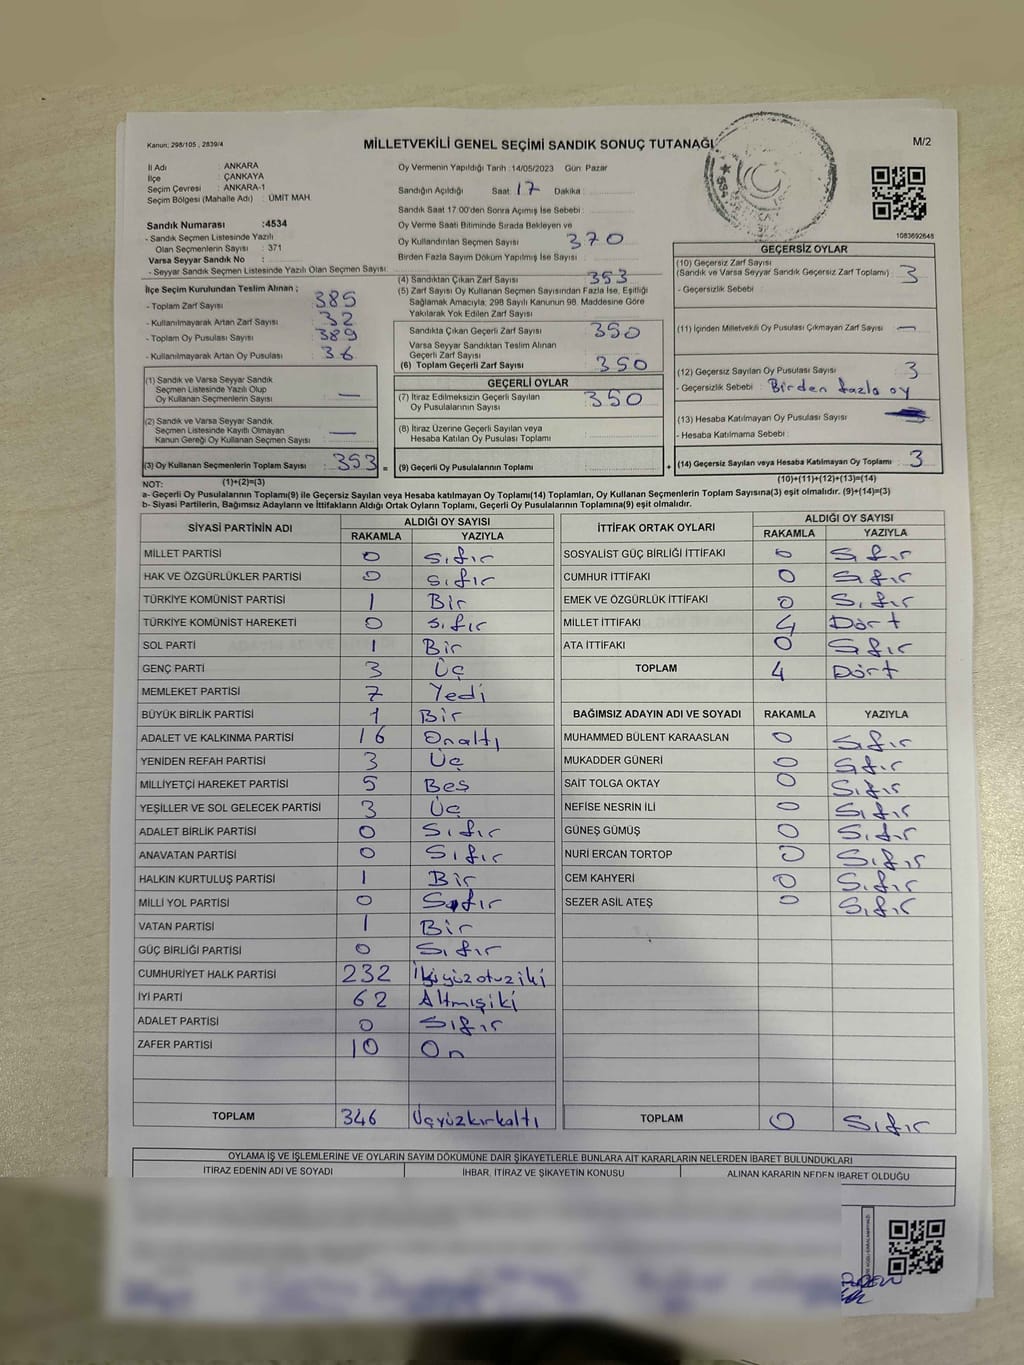 Kanun: 298/105 , 2839/4
MİLLETVEKİLİ GENEL SEÇİMİ SANDIK SONUÇ TUTANAĞI
M/2
İl Adı : ANKARA
İlçe : ÇANKAYA
Seçim Çevresi : ANKARA-1
Seçim Bölgesi (Mahalle Adı) : ÜMİT MAH.
Sandık Numarası :4534
- Sandık Seçmen Listesinde Yazılı
Olan Seçmenlerin Sayısı : 371
Varsa Seyyar Sandık No :
- Seyyar Sandık Seçmen Listesinde Yazılı Olan Seçmen Sayısı:
Oy Vermenin Yapıldığı Tarih :14/05/2023 Gün :Pazar
Sandığın Açıldığı Saat: 17 Dakika :
Sandık Saat 17:00'den Sonra Açılmış İse Sebebi :
Oy Verme Saati Bitiminde Sırada Bekleyen ve
Oy Kullandırılan Seçmen Sayısı : 370
Birden Fazla Sayım Döküm Yapılmış İse Sayısı :
1083692648
İlçe Seçim Kurulundan Teslim Alınan ;
- Toplam Zarf Sayısı : 385
- Kullanılmayarak Artan Zarf Sayısı : 32
- Toplam Oy Pusulası Sayısı : 389
- Kullanılmayarak Artan Oy Pusulası : 36
(1) Sandık ve Varsa Seyyar Sandık
Seçmen Listesinde Yazılı Olup
Oy Kullanan Seçmenlerin Sayısı : —
(2) Sandık ve Varsa Seyyar Sandık
Seçmen Listesinde Kayıtlı Olmayan
Kanun Gereği Oy Kullanan Seçmen Sayısı : —
(3) Oy Kullanan Seçmenlerin Toplam Sayısı : 353 =
(1)+(2)=(3)
(4) Sandıktan Çıkan Zarf Sayısı : 353
(5) Zarf Sayısı Oy Kullanan Seçmen Sayısından Fazla İse, Eşitliği
Sağlamak Amacıyla; 298 Sayılı Kanunun 98. Maddesine Göre
Yakılarak Yok Edilen Zarf Sayısı :
Sandıkta Çıkan Geçerli Zarf Sayısı : 350
Varsa Seyyar Sandıktan Teslim Alınan
Geçerli Zarf Sayısı :
(6) Toplam Geçerli Zarf Sayısı : 350
GEÇERLİ OYLAR
(7) İtiraz Edilmeksizin Geçerli Sayılan
Oy Pusulalarının Sayısı : 350
(8) İtiraz Üzerine Geçerli Sayılan veya
Hesaba Katılan Oy Pusulası Toplamı :
(9) Geçerli Oy Pusulalarının Toplamı : +
GEÇERSİZ OYLAR
(10) Geçersiz Zarf Sayısı
(Sandık ve Varsa Seyyar Sandık Geçersiz Zarf Toplamı) : 3
- Geçersizlik Sebebi :
(11) İçinden Milletvekili Oy Pusulası Çıkmayan Zarf Sayısı : —
(12) Geçersiz Sayılan Oy Pusulası Sayısı : 3
- Geçersizlik Sebebi : Birden fazla oy
(13) Hesaba Katılmayan Oy Pusulası Sayısı :
- Hesaba Katılmama Sebebi :
(14) Geçersiz Sayılan veya Hesaba Katılmayan Oy Toplamı : 3
(10)+(11)+(12)+(13)=(14)
NOT:
a- Geçerli Oy Pusulalarının Toplamı(9) ile Geçersiz Sayılan veya Hesaba katılmayan Oy Toplamı(14) Toplamları, Oy Kullanan Seçmenlerin Toplam Sayısına(3) eşit olmalıdır. (9)+(14)=(3)
b- Siyasi Partilerin, Bağımsız Adayların ve İttifakların Aldığı Ortak Oyların Toplamı, Geçerli Oy Pusulalarının Toplamına(9) eşit olmalıdır.
SİYASİ PARTİNİN ADI ALDIĞI OY SAYISI
RAKAMLA YAZIYLA
MİLLET PARTİSİ 0 Sıfır
HAK VE ÖZGÜRLÜKLER PARTİSİ 0 Sıfır
TÜRKİYE KOMÜNİST PARTİSİ 1 Bir
TÜRKİYE KOMÜNİST HAREKETİ 0 Sıfır
SOL PARTİ 1 Bir
GENÇ PARTİ 3 Üç
MEMLEKET PARTİSİ 7 Yedi
BÜYÜK BİRLİK PARTİSİ 1 Bir
ADALET VE KALKINMA PARTİSİ 16 Onaltı
YENİDEN REFAH PARTİSİ 3 Üç
MİLLİYETÇİ HAREKET PARTİSİ 5 Beş
YEŞİLLER VE SOL GELECEK PARTİSİ 3 Üç
ADALET BİRLİK PARTİSİ 0 Sıfır
ANAVATAN PARTİSİ 0 Sıfır
HALKIN KURTULUŞ PARTİSİ 1 Bir
MİLLİ YOL PARTİSİ 0 Sıfır
VATAN PARTİSİ 1 Bir
GÜÇ BİRLİĞİ PARTİSİ 0 Sıfır
CUMHURİYET HALK PARTİSİ 232 İkiyüzotuziki
İYİ PARTİ 62 Altmışiki
ADALET PARTİSİ 0 Sıfır
ZAFER PARTİSİ 10 On
TOPLAM 346 Üçyüzkırkaltı
İTTİFAK ORTAK OYLARI ALDIĞI OY SAYISI
RAKAMLA YAZIYLA
SOSYALİST GÜÇ BİRLİĞİ İTTİFAKI 0 Sıfır
CUMHUR İTTİFAKI 0 Sıfır
EMEK VE ÖZGÜRLÜK İTTİFAKI 0 Sıfır
MİLLET İTTİFAKI 4 Dört
ATA İTTİFAKI 0 Sıfır
TOPLAM 4 Dört
BAĞIMSIZ ADAYIN ADI VE SOYADI RAKAMLA YAZIYLA
MUHAMMED BÜLENT KARAASLAN 0 Sıfır
MUKADDER GÜNERİ 0 Sıfır
SAİT TOLGA OKTAY 0 Sıfır
NEFİSE NESRİN İLİ 0 Sıfır
GÜNEŞ GÜMÜŞ 0 Sıfır
NURİ ERCAN TORTOP 0 Sıfır
CEM KAHYERİ 0 Sıfır
SEZER ASİL ATEŞ 0 Sıfır
TOPLAM 0 Sıfır
OYLAMA İŞ VE İŞLEMLERİNE VE OYLARIN SAYIM DÖKÜMÜNE DAİR ŞİKAYETLERLE BUNLARA AİT KARARLARIN NELERDEN İBARET BULUNDUKLARI
İTİRAZ EDENİN ADI VE SOYADI İHBAR, İTİRAZ VE ŞİKAYETİN KONUSU ALINAN KARARIN NEDEN İBARET OLDUĞU